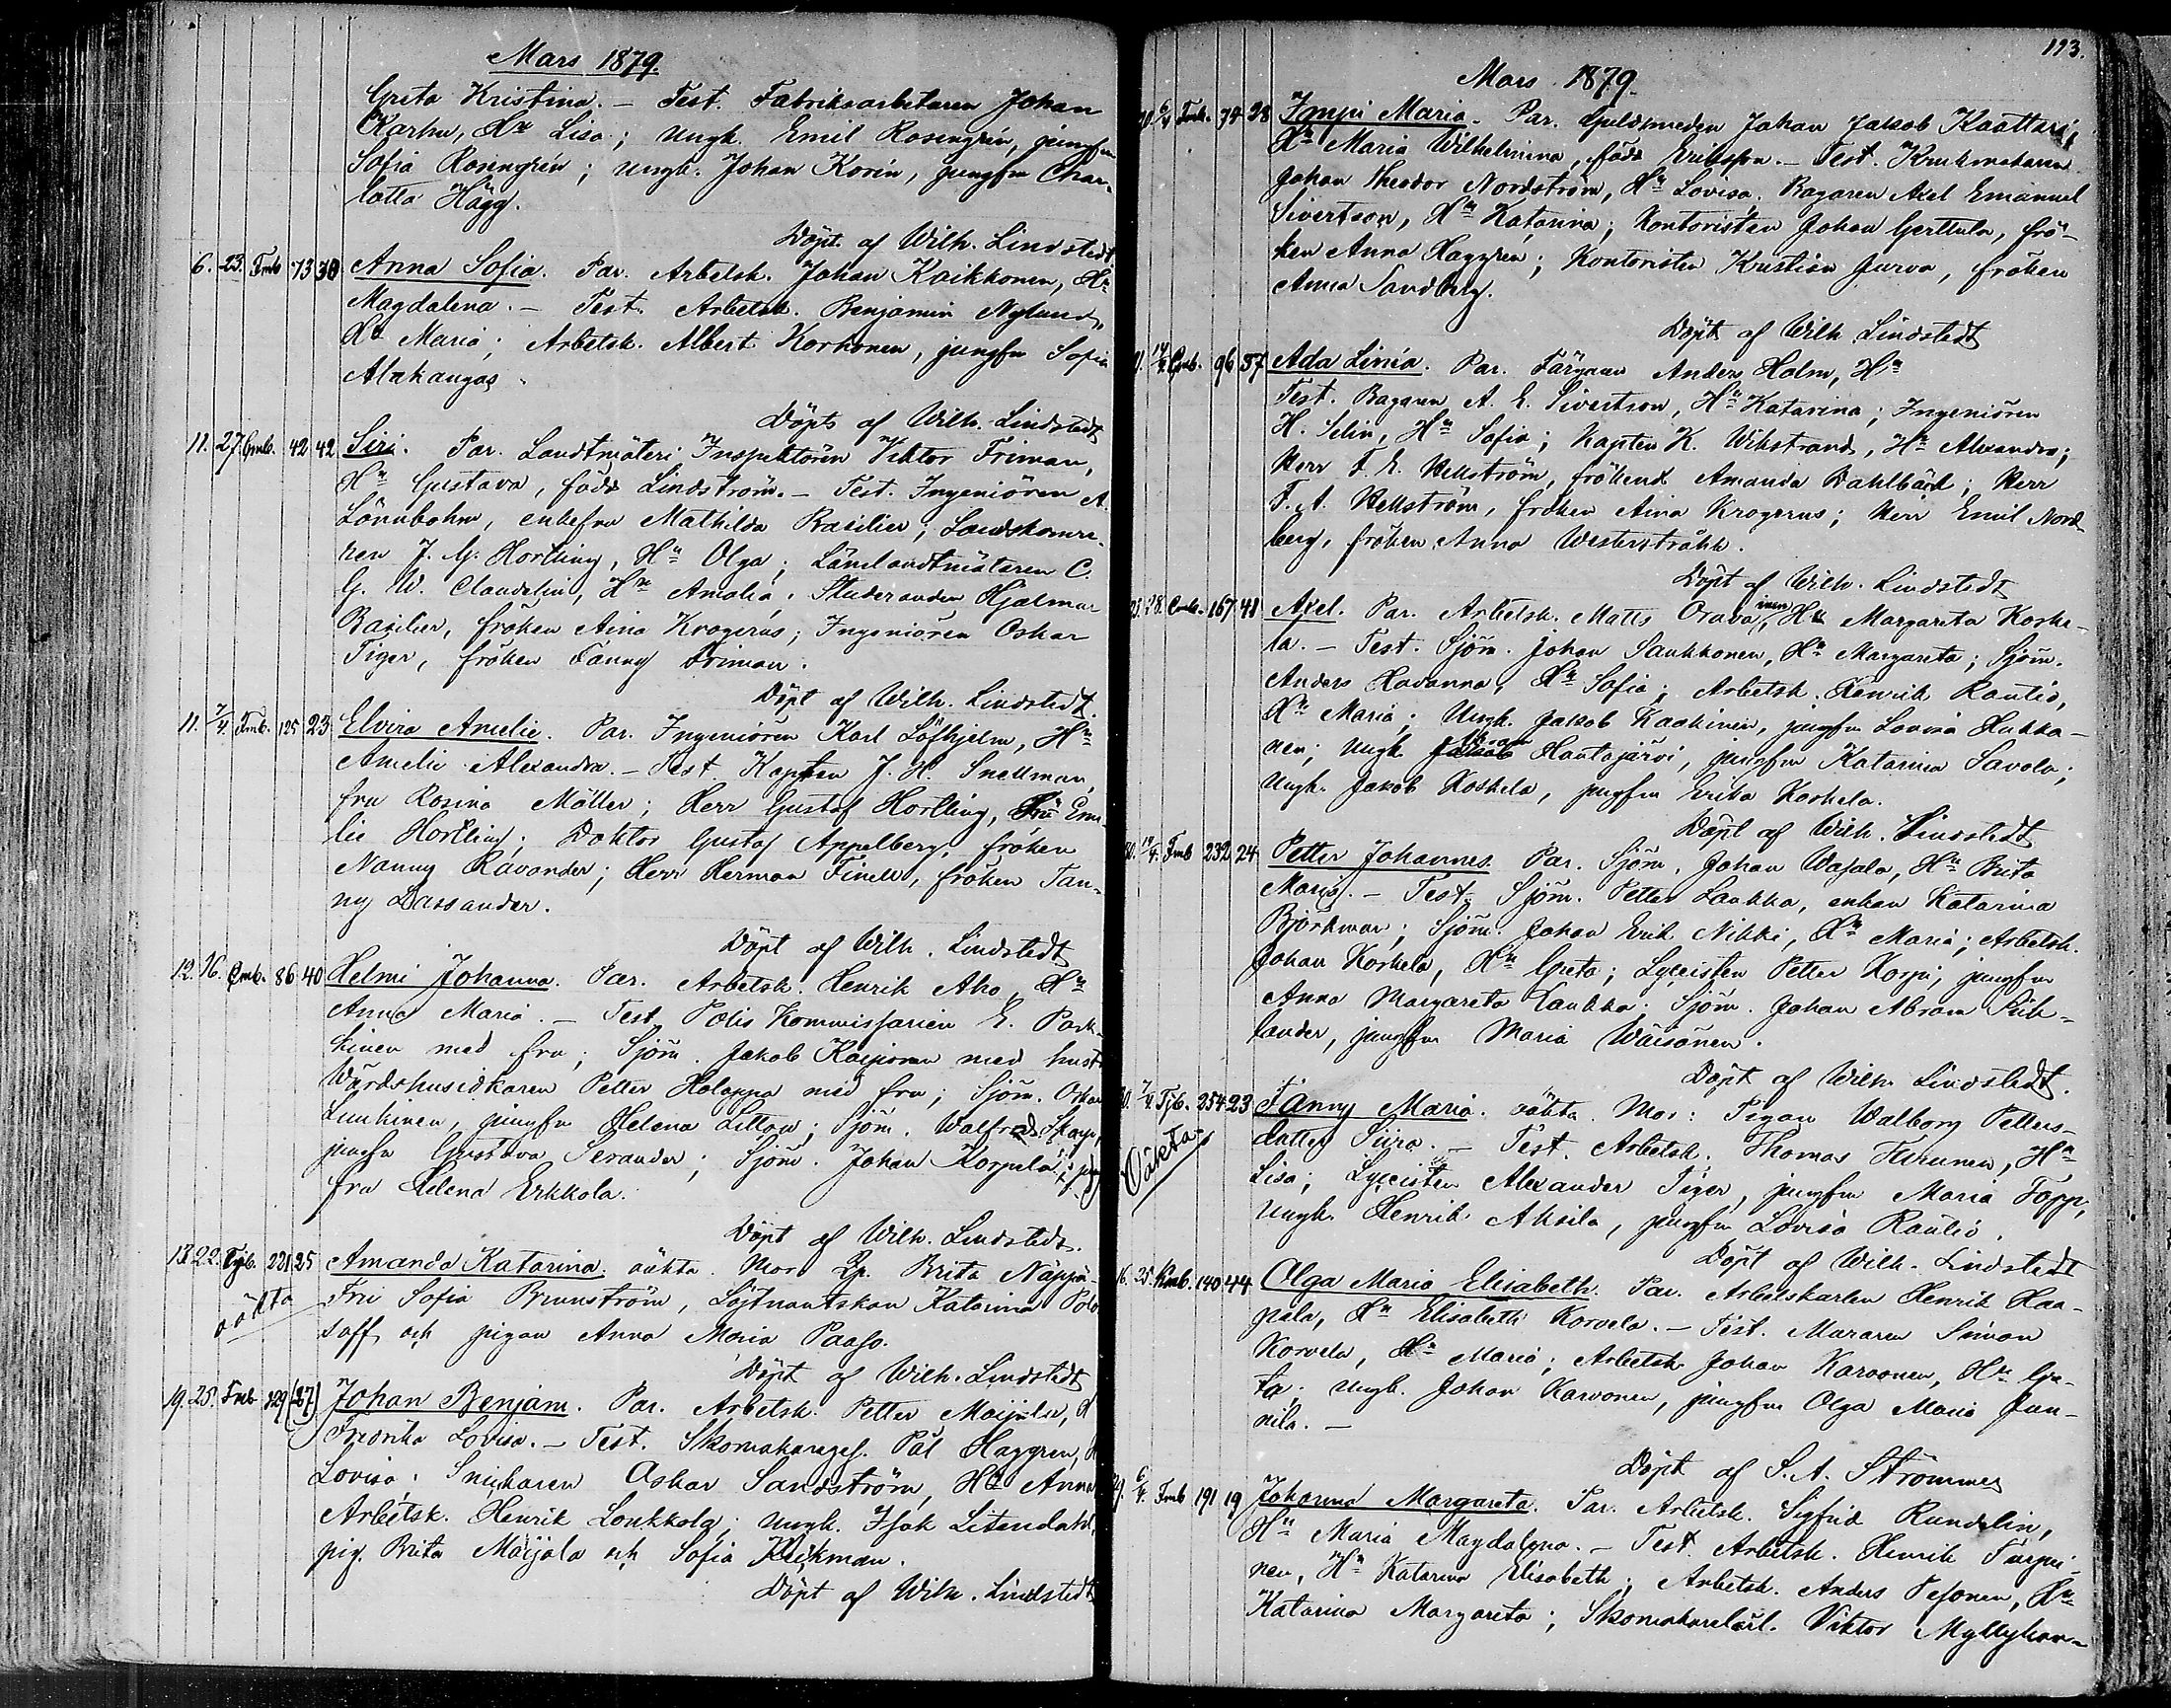 Mars 1879.
Greta Kristina. – Test. Fabriksarbetaren Johan
Karhu, Hu Lisa; Ungk. Emil Rosengrén, jungfru
Sofia Rosengrén; Ungk. Johan Korin, jungfru Char-
lotta Hägg.
Döpt af Wilh. Lindstedt
6. 23. Fmb 73 30 Anna Sofia. Par. Arbetsk. Johan Kaikkonen, Hu
Magdalena. – Test. Arbetsk. Benjamin Nylund,
Hu Maria; Arbetsk. Albert Korhonen, jungfru Sofia
Alakangas.
Döpts af Wilh. Lindstedt
11. 27. Gmb. 42 42 Siri. Par. Landtmäteri Inspektören Viktor Friman,
Hu Gustava, född Lindström. – Test. Ingeniören A.
Lönnbohm, enkefru Mathilda Basilier; Landskamre-
raren J. G. Hortling, Hu Olga; Länelandtmätaren C.
G. W. Claudelin, Hu Amalia; Studeranden Hjalmar
Basilier, fröken Aina Krogerus; Ingeniören Oskar
Tiger, fröken Fanny Friman.
Döpt af Wilh. Lindstedt.
11. 7/4. Fmb. 125 23 Elvira Amelie. Par. Ingeniören Karl Löfhjelm, Hu
Amelie Alexandra. – Test. Kapten J. H. Snellman,
fru Rosina Möller; Herr Gustaf Hortling, Fru Emi-
lie Hortling; Doktor Gustaf Appelberg, fröken
Nanny Ravander; Herr Herman Finell, fröken Fan-
ny Dassander.
Döpt af Wilh. Lindstedt
12. 16. Cmb. 86 40 Helmi Johanna. Par. Arbetsk. Henrik Aho, Hu
Anna Maria. – Test. Polis Kommissarien E. Park-
kinen med fru; Sjöm. Jakob Karjonen med hust.
Värdshusidkaren Petter Holappa med fru; Sjöm. Oskar
Lunkinen, jungfru Helena Littow; Sjöm. Walfrid Skarp,
jungfru Gustava Serander; Sjöm. Johan Korpela
fru Helena Erkkola.
Döpt af Wilh. Lindstedt.
13. 22. Tjb. 221 25 Amanda Katarina. oäkta. Mor Pp. Brita Näppä-
oäkta Fru Sofia Brunström, Löjtnantskan Katarina
soff och pigan Anna Maria Paaso.
Döpt af Wilh. Lindstedt
19. 25. Fmb 329 (27) Johan Benjam. Par. Arbetsk. Petter Maijala, H
Fredrika Lovisa. – Test. Skomakareges. Pål Haggren, H
Lovisa; Snickaren Oskar Sandström, Hu Anna
Arbetsk. Henrik Loukkola; Ungk. Isak Litendahl,
pig. Brita Maijala och Sofia Kyckman.
Döpt af Wilh. Lindstedt
113.
Mars 1879.
20. 6/4 Fmb. 74 28 Impi Maria. Par. Guldsmeden Johan Jakob Kaattari,
Hu Maria Wilhelmina, född Eriksson. – Test. Krukmakaren
Johan Theodor Nordström, Hu Lovisa; Bagaren Axel Emanuel
Sivertson, Hu Katarina; Kontoristen Johan Gerttula, frö-
ken Anna Haggren; Kontoristen Kristian Jurva, fröken
Anna Sandberg.
Döpt af Wilh Lindstedt
14/4. Gmb. 96 37 Ada Linéa. Par. Färgaren Anders Holm, Hu
Test. Bagaren A. E. Sivertson, Hu Katarina; Ingeniören
H. Selin, Hu Sofia; Kapten K. Wikstrand, Hu Alexandra;
Herr F. E. Hellström, fröken Amanda Dahlbäck; Herr
F. A. Hellström, fröken Aina Krogerus; Herr Emil Nord-
berg, fröken Anna Westerstråhle.
Döpt af Wilh. Lindstedt
28. Cmb. 167 41 Axel. Par. Arbetsk. Matts Oravainen, Hu Margareta Koske-
la. – Test. Sjöm. Johan Saukkonen, Hu Margareta; Sjöm.
Anders Havanna, Hu Sofia; Arbetsk. Henrik Rautio,
Hu Maria; Ungk. Jakob Kaakinen, jungfru Lovisa Hukka-
nen; Ungk. Johan Hautajärvi, jungfru Katarina Savola;
Ungk. Jakob Koskela, jungfru Erika Koskela.
Döpt af Wilh. Lindstedt
14/4. Fmb 232 24 Petter Johannes. Par. Sjöm. Johan Wajala, Hu Brita
Maria. – Test. Sjöm. Petter Laukka, enkan Katarina
Björkman; Sjöm. Johan Erik Nikki, Hu Maria; Arbetsk.
Johan Koskela, Hu Greta; Lyceisten Petter Korpi, jungfru
Anna Margareta Laukka; Sjöm. Johan Abram Pih-
lander, jungfru Maria Wäisänen.
Döpt af Wilh Lindstedt.
7/4. Tjb. 254 23 Fanny Maria. oäkta. Mor: Pigan Walborg Petters-
Oäkta dotter Siira. – Test. Arbetsk. Thomas Turunen, Hu
Lisa; Lyceisten Alexander Tiger, jungfru Maria Topp;
Ungk. Henrik Aksila, jungfru Lovisa Rautio.
Döpt af Wilh. Lindstedt
16. 25. Kmb. 140 44 Olga Maria Elisabeth. Par. Arbetskarlen Henrik Haa-
pala, Hu Elisabeth Korvela. – Test. Muraren Simon
Korvela, Hu Maria; Arbetsk Johan Karvonen, Hu Gre-
ta; Ungk. Johan Karvonen, jungfru Olga Maria Jun-
nila. –
Döpt af S. A. Strömmer
29. 6/4. Fmb 191 19 Johanna Margareta. Par. Arbetsk. Sigfrid Rundelin,
Hu Maria Magdalena. – Test. Arbetsk. Henrik Turpei-
nen, Hu Katarina Elisabeth; Arbetsk. Anders Pesonen, Hu
Katarina Margareta; Skomakarelärl. Viktor Myllykan-